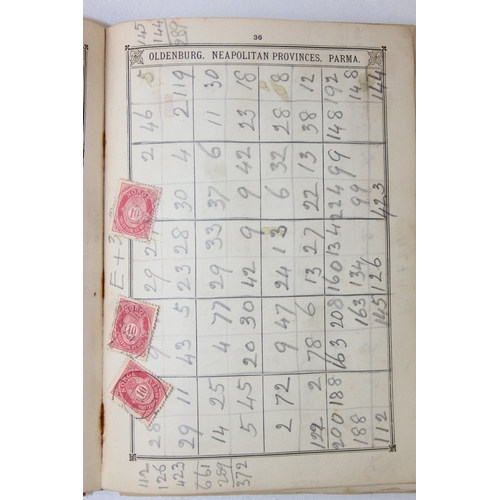 36
OLDENBURG. NEAPOLITAN PROVINCES. PARMA.
145
144
289
E + 3
28 9 29 2 46
29 11 43 5 23 28 30 4 2 119
14 25 4 77 29 33 37 6 11 30
5 45 20 30 42 9 9 42 23 18
2 72 9 47 24 13 6 32 28 8
122 2 78 6 13 27 22 13 38 12
200 188 163 208 160 134 224 99 148 192
188 163 134 99 148
112 145 126 423 144
112
126
423
661
289
372
NORGE
10
10
NORGE
10